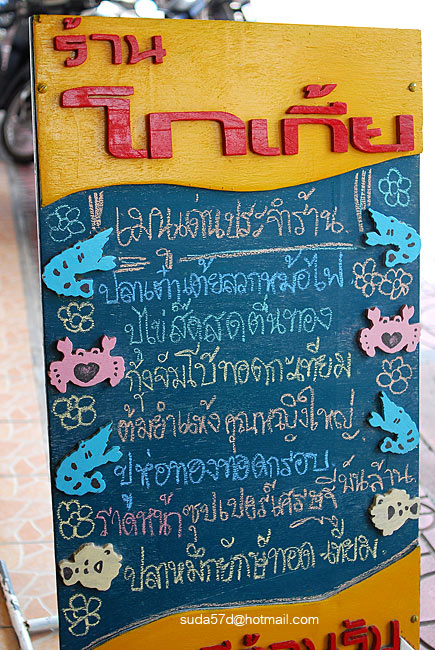 ร้าน
โกเกี้ย
เมนูเด่นประจำร้าน
ปลาเต๋าเต้ยลวกหม้อไฟ
ปูไข่
กุ้งจัมโบ้ทอดกะเทียม
ต้มยำแห้ง คุณหญิงใหญ่
ปูห่อทองทอดกรอบ
ราดหน้าซุปเปอร์เศรษฐีพันล้าน
ปลาหมึกยักษ์ทอด
suda57d@hotmail.com